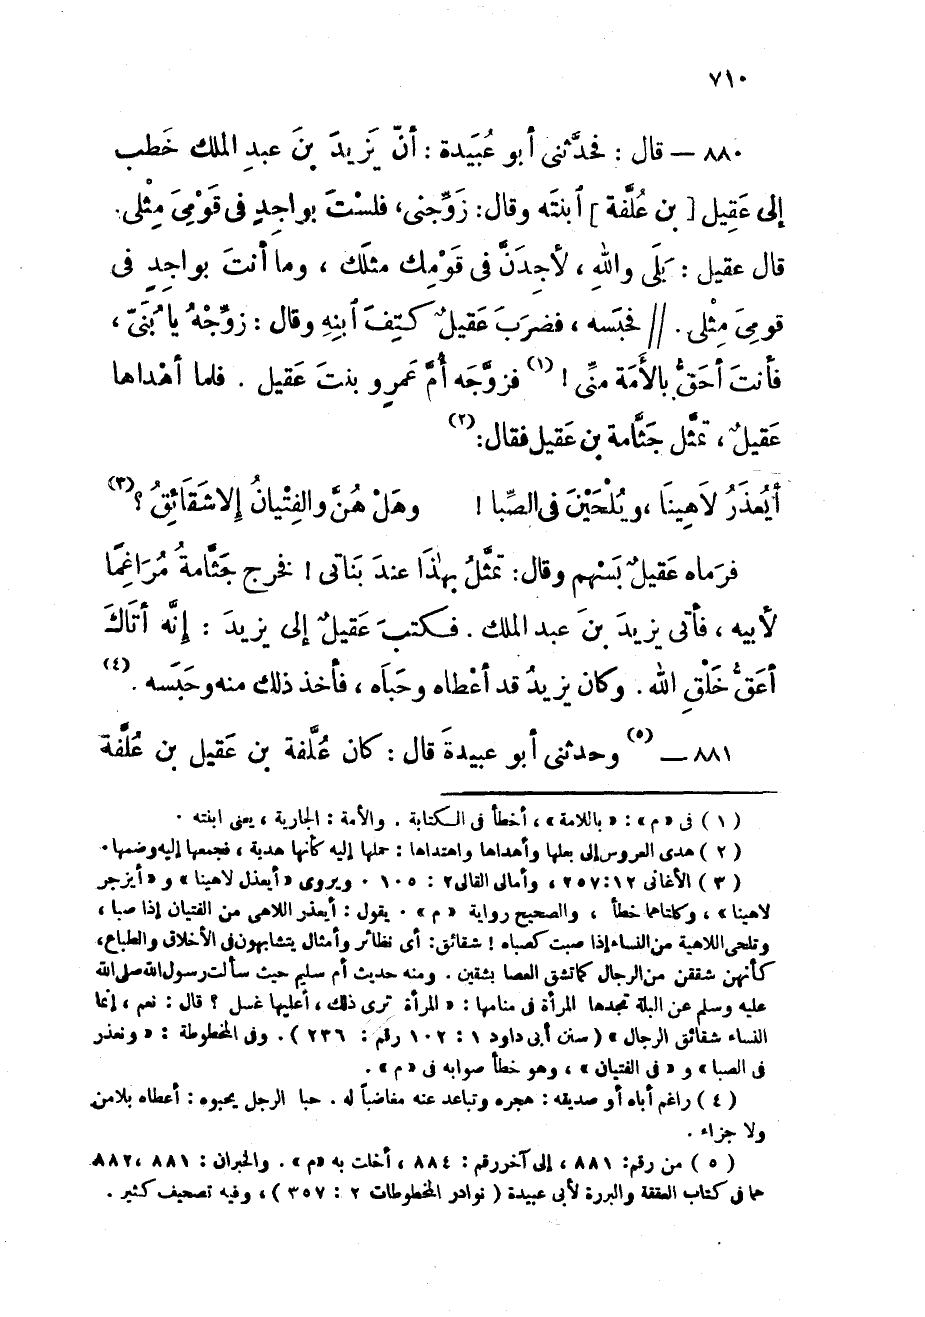 ٧١٠
٨٨٠ – قال : فحدَّثنى أبو عُبَيدة : أنّ يَزِيدَ بنَ عبدِ الملك خَطب
إلى عَقِيل [ بن عُلَّفة ] ٱبنتَه وقال: زَوِّجنى، فلستَ بواجِدٍ فى قَوْمِىَ مِثْلى.
قال عقيل : بَلَى واللهِ ، لأجِدَنَّ فى قَوْمِك مثلَك ، وما أنتَ بواجِدٍ فى
قومِىَ مِثْلى . // فحَبَسه ، فضرَبَ عَقيلٌ كتِفَ ٱبنِهِ وقال : زوِّجْهُ يا بُنَىّ ،
فأنتَ أحَقُّ بالأَمَة منِّى ! (١) فزوَّجَه أُمَّ عَمرٍو بنتَ عَقيل . فلما أهْداها
عَقيلٌ ، تمثَّل جَثَّامة بن عَقيل فقال: (٢)
أَيُعذَرُ لَاهِينَا ، ويُلْحَيْنَ فى الصِّبا ! وهَلْ هُنَّ والفِتْيانُ إلا شَقَائِقُ ؟ (٣)
فرَماه عَقيلٌ بسَهم وقال: تمثَّلُ بهٰذَا عندَ بَناتى ! فخرج جَثَّامةُ مُرَاغِمًا
لأبيه ، فأتى يزيدَ بنَ عبد الملك . فكتبَ عَقيلٌ إلى يزيدَ : إنَّه أتَاكَ
أعَقُّ خَلْقِ الله . وكان يزيدُ قد أعْطاه وحَبَاه ، فأخذ ذلك منه وحَبَسه . (٤)
٨٨١ – (٥) وحدثنى أبو عبيدةَ قال : كان عُلَّفة بن عَقيل بن عُلَّفة
(١) فى «م» : «باللامة» ، أخطأ فى الكتابة . والأمة : الجارية ، يعنى ابنته .
(٢) هدى العروس إلى بعلها وأهداها واهتداها : حملها إليه كأنها هدية ، فجمعها إليه وضمها .
(٣) الأغانى ١٢ : ٢٥٧ ، وأمالى القالى ٢ : ١٠٥ . ويروى «أيعذل لاهينا» و «أيزجر
لاهينا» ، وكلتاهما خطأ ، والصحيح رواية «م» . يقول : أيعذر اللاهى من الفتيان إذا صبا ،
وتلحى اللاهية من النساء إذا صبت كصباه ! شقائق: أى نظائر وأمثال يتشابهون فى الأخلاق والطباع،
كأنهن شققن من الرجال كما تشق العصا بشقين . ومنه حديث أم سليم حيث سألت رسول الله صلى الله
عليه وسلم عن البلة تجدها المرأة فى منامها : «المرأة ترى ذلك ، أعليها غسل ؟ قال : نعم ، إنما
النساء شقائق الرجال» (سنن أبى داود ١ : ١٠٢ رقم : ٢٣٦) . وفى المخطوطة : «ونعذر
فى الصبا» و «فى الفتيان» ، وهو خطأ صوابه فى «م» .
(٤) راغم أباه أو صديقه : هجره وتباعد عنه مغاضباً له . حبا الرجل يحبوه : أعطاه بلامن
ولا جزاء .
(٥) من رقم: ٨٨١ ، إلى آخر رقم : ٨٨٤ ، أخلت به «م» . والخبران : ٨٨١ ، ٨٨٢
هما فى كتاب العققة والبررة لأبى عبيدة (نوادر المخطوطات ٢ : ٣٥٧) ، وفيه تصحيف كثير .